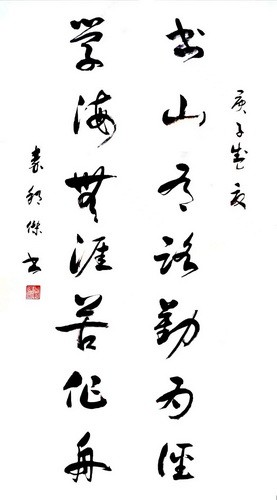 庚子盛夏
書山有路勤為徑
學海無涯苦作舟
傑書